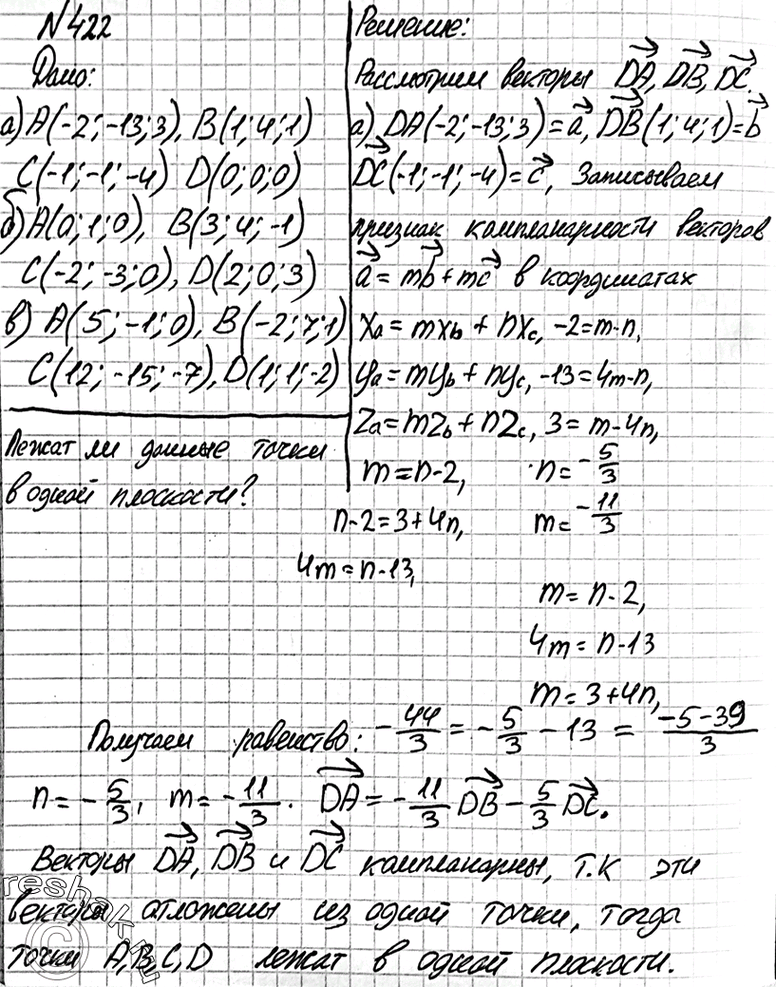 N 422
Дано:
а) A(-2; -13; 3), B(1; 4; 1)
C(-1; -1; -4) D(0; 0; 0)
б) A(0; 1; 0), B(3; 4; -1)
C(-2; -3; 0), D(2; 0; 3)
в) A(5; -1; 0), B(-2; 7; 1)
C(12; -15; -7), D(1; 1; -2)
Лежат ли данные точки
в одной плоскости?
Решение:
Рассмотрим векторы DA, DB, DC.
а) DA(-2; -13; 3) = a, DB(1; 4; 1) = b
DC(-1; -1; -4) = c, Записываем
признак компланарности векторов
a = mb + mc в координатах
Xa = mxb + nxc, -2 = m-n,
Ya = myb + nyc, -13 = 4m-n,
Za = mzb + nzc, 3 = m-4n,
m = n-2, n = -5/3
n-2 = 3+4n, m = -11/3
4m = n-13,
m = n-2,
4m = n-13
m = 3+4n,
Получаем равенство: -44/3 = -5/3 - 13 = (-5-39)/3
n = -5/3, m = -11/3. DA = -11/3 DB - 5/3 DC.
Векторы DA, DB и DC компланарны, т.к эти
векторы отложены из одной точки, тогда
точки A, B, C, D лежат в одной плоскости.